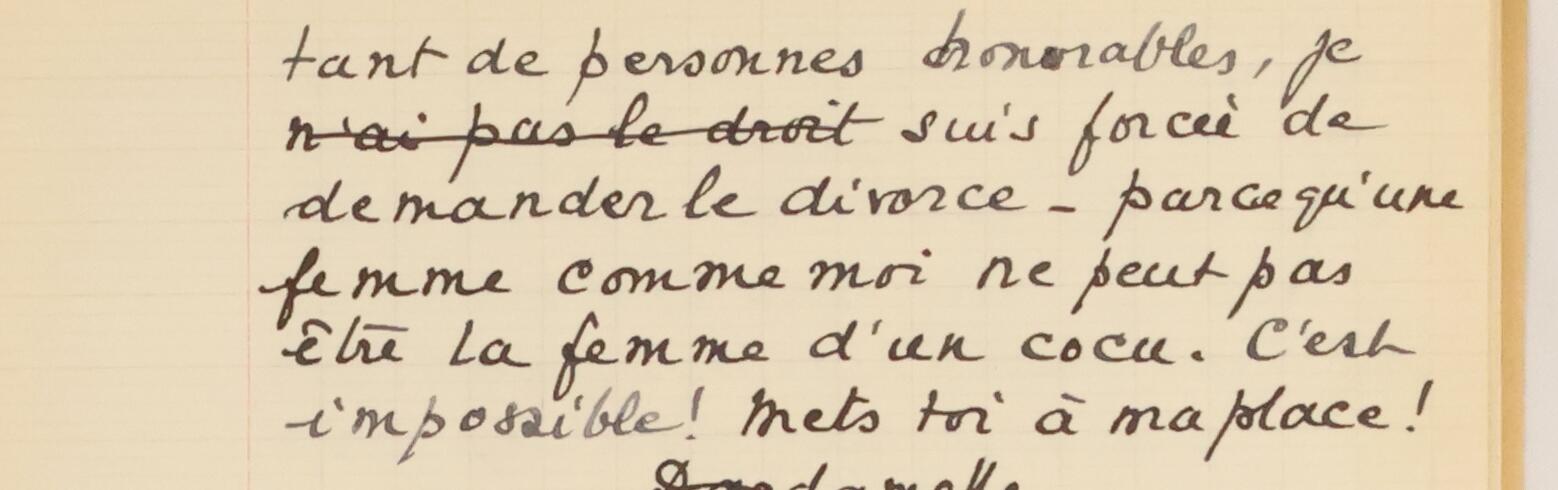 tant de personnes honorables, je
n'ai pas le droit suis forcée de
demander le divorce - parcequ'une
femme comme moi ne peut pas
être la femme d'un cocu. C'est
impossible! Mets toi à ma place!